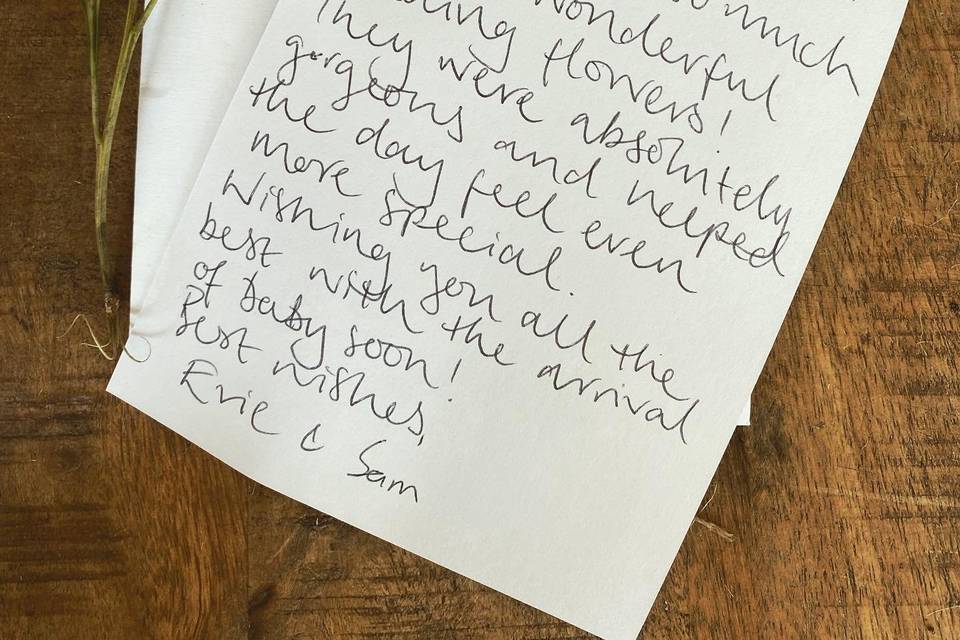 so much
wonderful
flowers!
They were absolutely
gorgeous and helped
the day feel even
more special.
Wishing you all the
best with the arrival
of baby soon!
Best wishes,
Evie & Sam